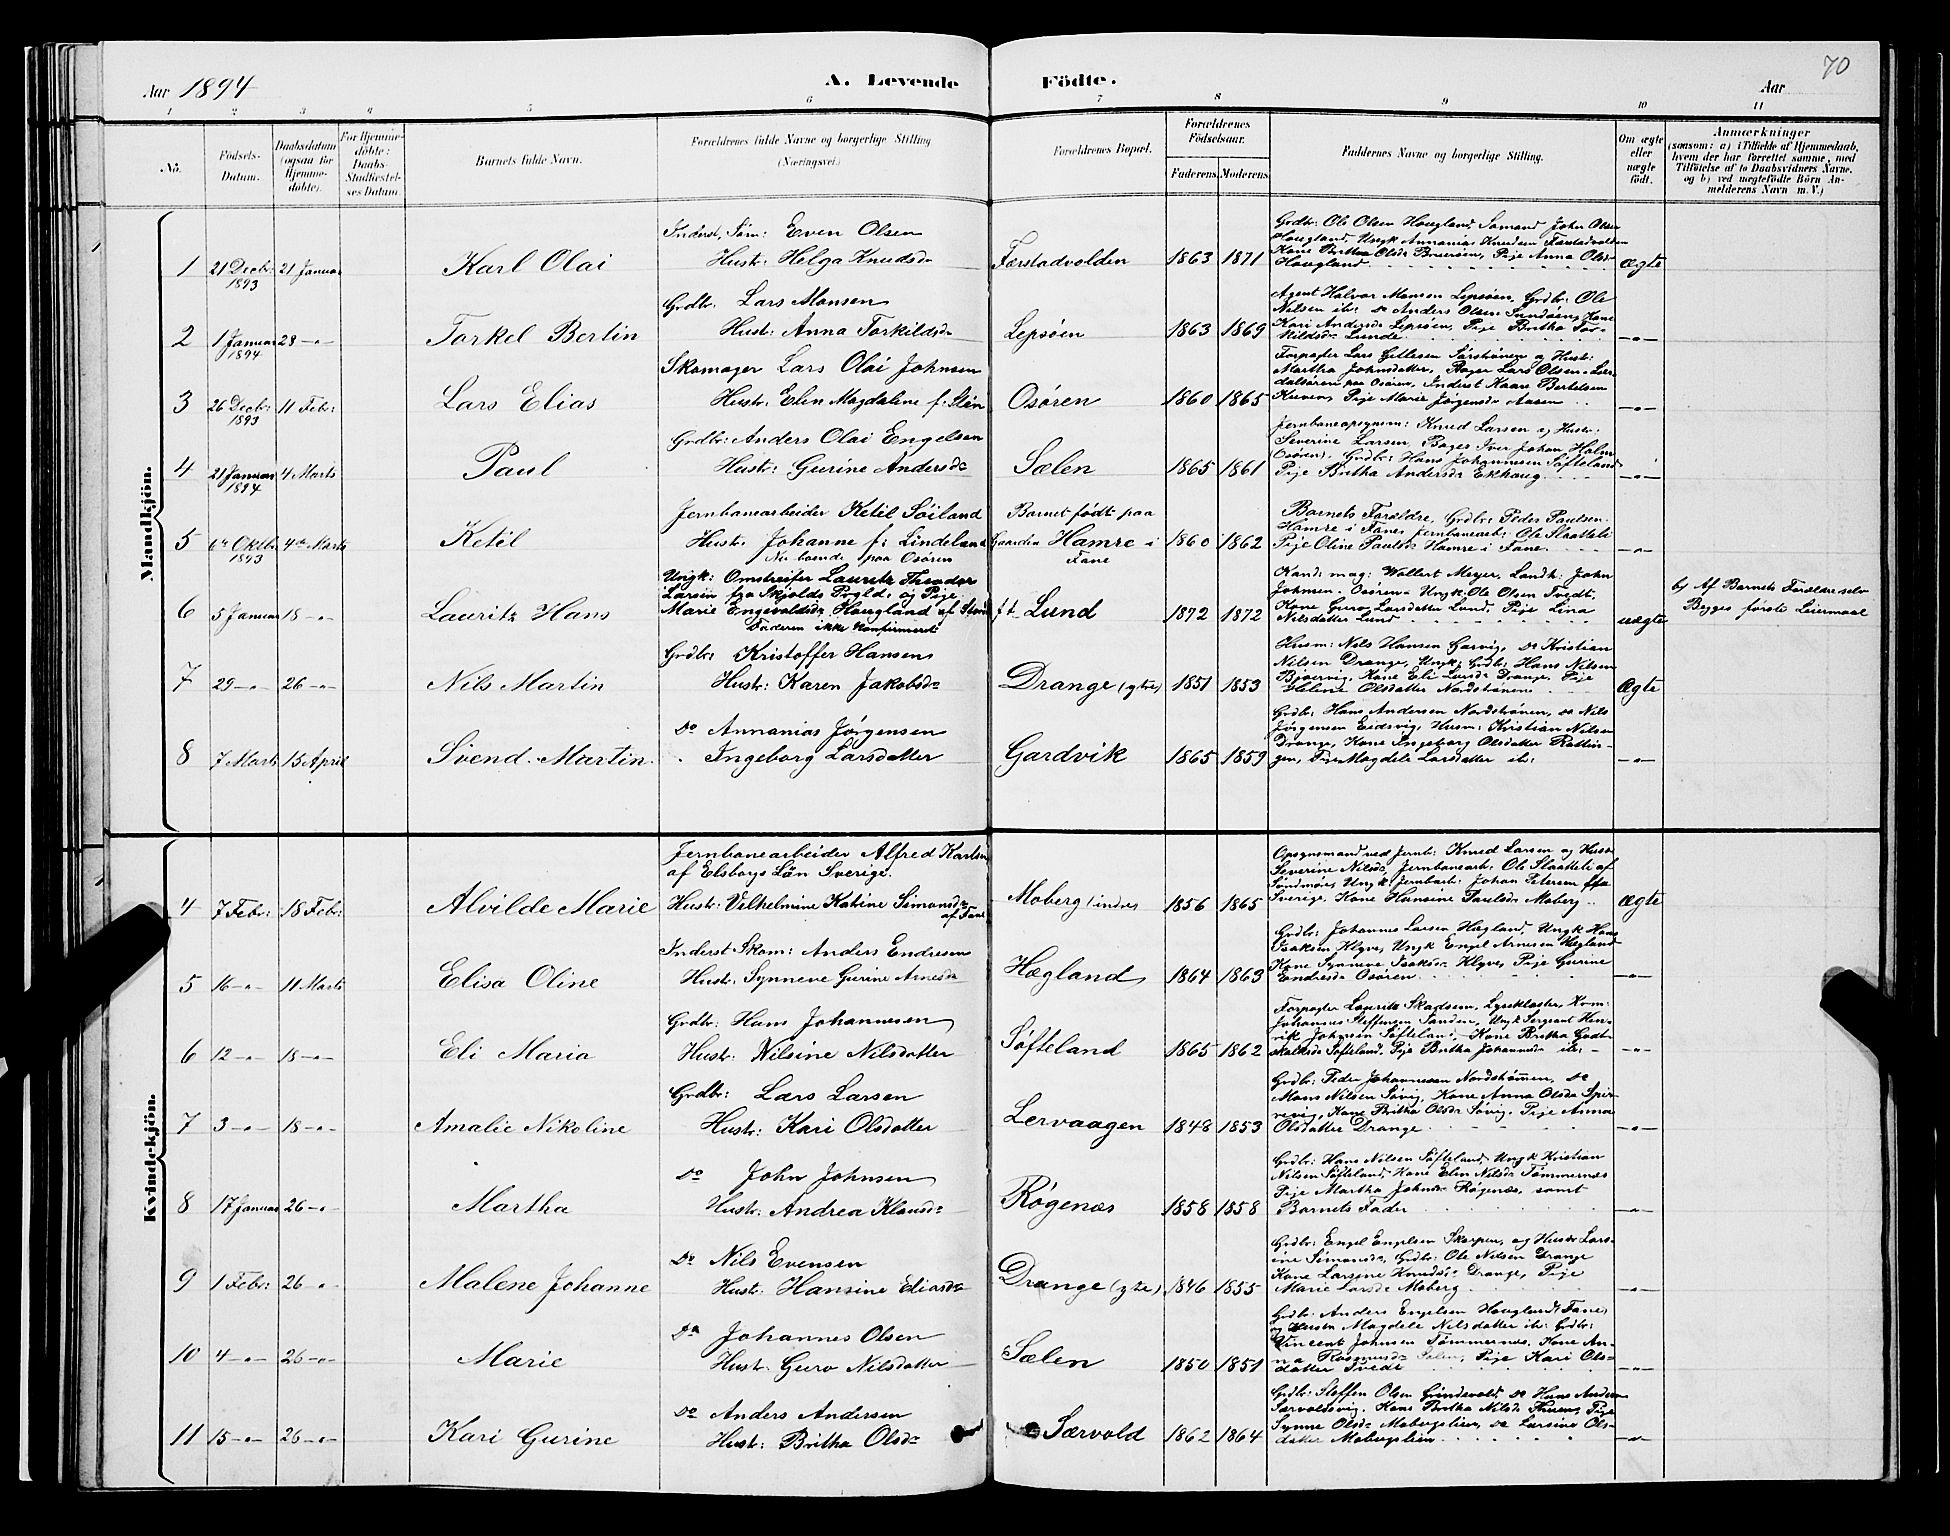 70
Aar 1894
A. Levende Födte.
Aar
1 2 3 4 5 6 7 8 9 10 11
No.
Födsels-Datum.
Daabsdatum (ogsaa for Hjemmedöbte).
For Hjemmedöbte: Daabs-Stadfæstelses Datum
Barnets fulde Navn.
Forældrenes fulde Navne og borgerlige Stilling (Næringsvei.)
Forældrenes Bopæl.
Forældrenes Födselsaar.
Faderens. Moderens.
Faddernes Navne og borgerlige Stilling.
Om ægte eller uægte födt.
Anmærkninger
(saasom: a) i Tilfælde af Hjemmedaab, hvem der har forrettet samme, med Tilföielse af to Daabsvidners Navne. og b) ved uægtefödte Börn Anmelderens Navn m. V.)
Mandkjön.
1 21 Decbr: 1893 21 Januar Karl Olai
Inderst, Søm: Even Olsen
Hust: Helga Knudsdr
Førstadvolden 1863 1871
Grdbr: Ole Olsen Hougland, Sømand John Olsen
Hougland, Ungk. Annanias Knudsen Førstadvolden
Kone Britha Olsdr Pije Anna Olsdr
Hougland
ægte
2 1 Januar 1894 28 -"- Torkel Bertin
Grdbr. Lars Monsen
Hust: Anna Torkildsdr
Lepsøen 1863 1869
Agent Halvor Monsen Lepsøen, Grdbr: Ole
Nilsen ib: do Anders Olsen Sundøen, Kone
Kari Andersdr Lepsøen, Pije Britha Tor-
kildsdr Lunde
-"-
3 26 Decbr: 1893 11 Febr: Lars Elias
Skomager Lars Olai Johnsen
Hustr: Elen Magdalene f: Steen
Osøren 1860 1865
Forpagter Lars Gellesen Sørstrønen og Hust:
Martha Johnsdatter, Bager Lars Olsen Lær-
dalsøren paa Osøren, Inderst Haar Bertelsen
Kuven, Pije Marie Jørgensdr Aasen
-"-
4 21 Januar 1894 4 Marts Paul
Grdbr: Anders Olai Engelsen
Hust: Gurine Andersdr
Sælen 1865 1861
Jernbaneopsynsm: Knud Larsen og Hustr:
Severine Larsen, Bager Iver Johan Holm
Osøren. Grdbr: Hans Johannesen Søfteland
Pije Britha Andersdr Ekhaug
-"-
5 6te Oktbr 1893 4de Marts Ketil
Jernbanearbeider Ketil Søiland
Hust. Johanne f: Lindeland
Nu boende paa Osøren
Barnet født paa
Gaarden Hamre i
Fane
1860 1862
Barnets Forældre, Grdbr: Peder Paulsen
Hamre i Fane, Jernbanearb: Ole Slaatteli
Pije Oline Paulsdr Hamre i Fane
-"-
6 5 Januar 18 -"- Lauritz Hans
Ungk: Omstreifer Lauritz Theodor
Larsen fra Skjolds Prgld: og Pije
Marie Engevoldsdr Haugland af
Faderen ikke konfirmeret
p.t. Lund 1872 1872
Kand: mag: Wollert Meyer, Landh: John
Johnsen Osøren, Ungk. Ole Olsen Tvedt,
Kone Guro Larsdatter Lund, Pije Lina
Nilsdatter Lund
uægte
b) Af Barnets Forældre selv
Begges første Leiermaal
7 29 -"- 26 -"- Nils Martin
Grdbr: Kristoffer Hansen
Hust: Karen Jakobsdr
Drange (ytre) 1851 1853
Husm: Nils Hansen Garvig, do Kristian
Nilsen Drange, Ungk: Grdbr: Hans Nilsen
Bjørvig, Kone Eli Larsdr Drange, Pije
Helene Olsdatter Nordstrønen
Ægte
8 7 Marts 15 April Svend Martin
Do Annanias Jørgensen
Ingeborg Larsdatter
Gardvik 1865 1859
Grdbr: Hans Andersen Nordstrønen, do Nils
Jørgensen Eidsvig, Husm: Kristian Nilsen
Drange, Kone Ingeborg Olsdatter Rottin-
gen, Pije Magdele Larsdatter ib:
-"-
Kvindekjön.
4 7 Febr: 18 Febr: Alvilde Marie
Jernbanearbeider Alfred Karlsen
af Elsborgs Län Sverige.
Hust: Vilhelmine Katrine Simonsdr
af Fane
Moberg (indre) 1856 1865
Opsynsmand ved Jernb: Knud Larsen og Hust
Severine Nilsdr, Jernbanearb: Ole Slaatteli af
Søndmøre, Ungk: Jernbarb: Johan Petersen fra
Sverige, Kone Hansine Paulsdr Moberg
Ægte
5 16 -"- 11 Marts Elisa Oline
Inderst Skom: Anders Endresen
Hust: Synneve Gurine Arnesdr
Hegland 1864 1863
Grdbr: Johannes Larsen Hegland, Ungk Hans
Isaksen Klyve, Ungk Engel Arnesen Hegland
Kone Synneve Isaksdr Klyve, Pije Gurine
Endresdr Osøren
-"-
6 12 -"- 18 -"- Eli Maria
Grdbr: Hans Johannesen
Hust: Nilsine Nilsdatter
Søfteland 1865 1862
Forpagter Lauritz Skadsem, Lysekloster, Kom:
Johannes Steffensen Sanden, Ungk Sergeant Hen-
rik Johnsen Søfteland, Kone Britha Godt-
skalksdr Søfteland, Pije Britha Johannesdr ib:
-"-
7 3 -"- 18 -"- Amalie Nikoline
Grdbr: Lars Larsen
Hustr: Kari Olsdatter
Lervaagen 1848 1853
Grdbr: Peder Johannesen Nordstrønen, do
Mons Nilsen Søvig, Kone Anna Olsdr
Kone Britha Olsdr Søvig, Pije Anna
Olsdatter Drange
-"-
8 17 Januar 26 -"- Martha
Do John Johnsen
Hust: Andrea Klausdr
Røgenæs 1858 1858
Grdbr: Hans Nilsen Søfteland, Ungk Kristian
Nilsen Søfteland, Kone Elen Nilsdr Tømmernæs
Pije Martha Johnsdr Røgenæs, samt
Barnets Fader
-"-
9 1 Febr: 26 -"- Malene Johanne
Do Nils Evensen
Hust: Hansine Eliasdr
Drange (ytre) 1846 1855
Grdbr: Engel Engelsen Skorpen, og Hustr Lars-
ine Simonsdr, Grdbr: Ole Nilsen Drange
Kone Larsine Knudsdr Drange, Pije
Marie Larsdr Moberg
-"-
10 4 -"- 26 -"- Marie
Do Johannes Olsen
Hust: Guro Nilsdatter
Sælen 1850 1851
Grdbr: Anders Engelsen Hougland (Fane)
og Hustr Magdele Nilsdatter ib: Grdbr:
Vincent Johnsen Tømmernæs, Kone An-
na Rasmusdr Sælen, Pije Kari Ols-
datter Tvedt
-"-
11 15 -"- 26 -"- Kari Gurine
Do Anders Andersen
Hust: Britha Olsdr
Særvold 1862 1864
Grdbr: Steffen Olsen Grindevold, do Hans Anders
Særvoldsvig, Kone Britha Nilsdr Pije
Synne Olsdr Mobergslien, do Larsine Ols-
datter Mobergslien
-"-